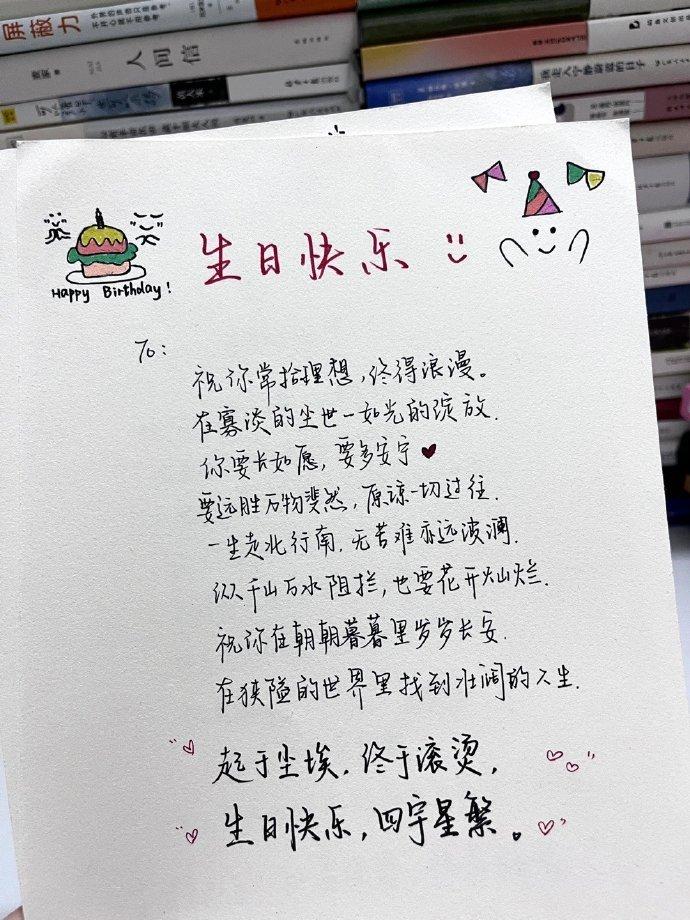 屏蔽力
人间信
我走入宁静寂寥的日子
生日快乐
Happy Birthday!
To:
祝你常拾理想，终得浪漫。
在寡淡的尘世一如光的绽放.
你要长如愿，要多安宁
要远胜万物斐然，原谅一切过往.
一生走北行南.无苦难亦远波澜.
纵千山万水阻拦，也要花开灿烂.
祝你在朝朝暮暮里岁岁长安.
在狭隘的世界里找到壮阔的人生.
起于尘埃，终于滚烫，
生日快乐，四宇星繁。